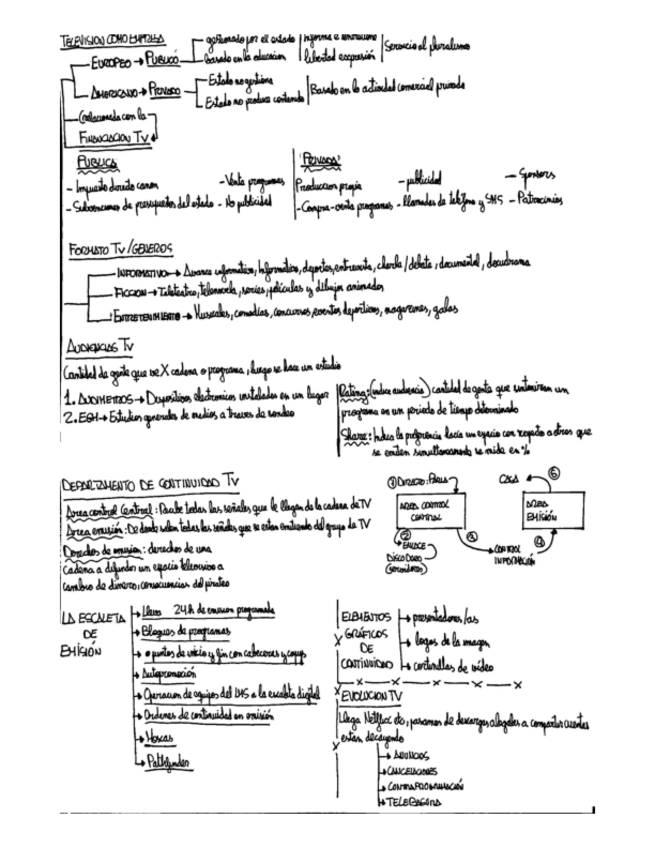 TELEVISION COMO EMPRESA
EUROPEO → PUBLICO
gestionado por el estado
basado en la educacion
informa e
libertad expresión
Servicio al pluralismo
AMERICANO → PRIVADO
Estado no gestiona
Estado no produce contenido
Basado en la actividad comercial privada
(relacionada con la
FINANCIACION TV
PUBLICA
- Impuesto directo canon
- Venta programas
- Subvenciones de presupuestos del estado
- No publicidad
PRIVADA
Produccion propia
- publicidad
- Sponsors
- Compra-venta programas
- llamadas de teléfono y SMS
- Patrocinios
FORMATO TV/GENEROS
INFORMATIVO → Avance informativo, Informativo, deportes, entrevista, charla / debate, documental, docudrama
FICCION → Teleteatro, telenovela, series, peliculas y dibujos animados
ENTRETENIMIENTO → Musicales, comedias, concursos, eventos deportivos, magazines, galas
AUDIENCIAS TV
Cantidad de gente que ve X cadena o programa, luego se hace un estudio
1. AUDIMETROS → Dispositivos electronicos instalados en un lugar
2. EGM → Estudios generales de medios a traves de sondeo
Rating: (indice audiencia) cantidad de gente que sintonizan un
programa en un periodo de tiempo determinado
Share: Indica la preferencia hacia un espacio con respeto a otros que
se emiten simultaneamente se mide en %
DEPARTAMENTO DE CONTINUIDAD TV
Area control Central: Recibe todas las señales que le llegan de la cadena de TV
Area emisión: De donde salen todas las señales que se estan emitiendo del grupo de TV
Derechos de emision: derechos de una
cadena a difundir un espacio televisivo a
cambio de dinero, consecuencias del pirateo
① DIRECTO:
AREA CONTROL
CENTRAL
②
ENLACE
DISCO DURO
(servidores)
③
CONTROL
INFORMACIÓN
④
AREA
EMISIÓN
⑤
CASA
LA ESCALETA
DE
EMISIÓN
→ Lleva 24h de emision programada
→ Bloques de programas
→ puntos de inicio y fin con cabeceras y
→ Autopromoción
→ Operacion de equipos del a la escaleta digital
→ Ordenes de continuidad en emisión
→ Moscas
→ Pathfinder
ELEMENTOS
GRÁFICOS
DE
CONTINUIDAD
→ presentadores/as
→ logos de la imagen
→ cortinillas de video
EVOLUCION TV
Llega Netflix etc, pasamos de descargas ilegales a compartir cuentas
estan decayendo
→ ANUNCIOS
→ CANCELACIONES
→ CONTRAPROGRAMACIÓN
→ TELEBASURA